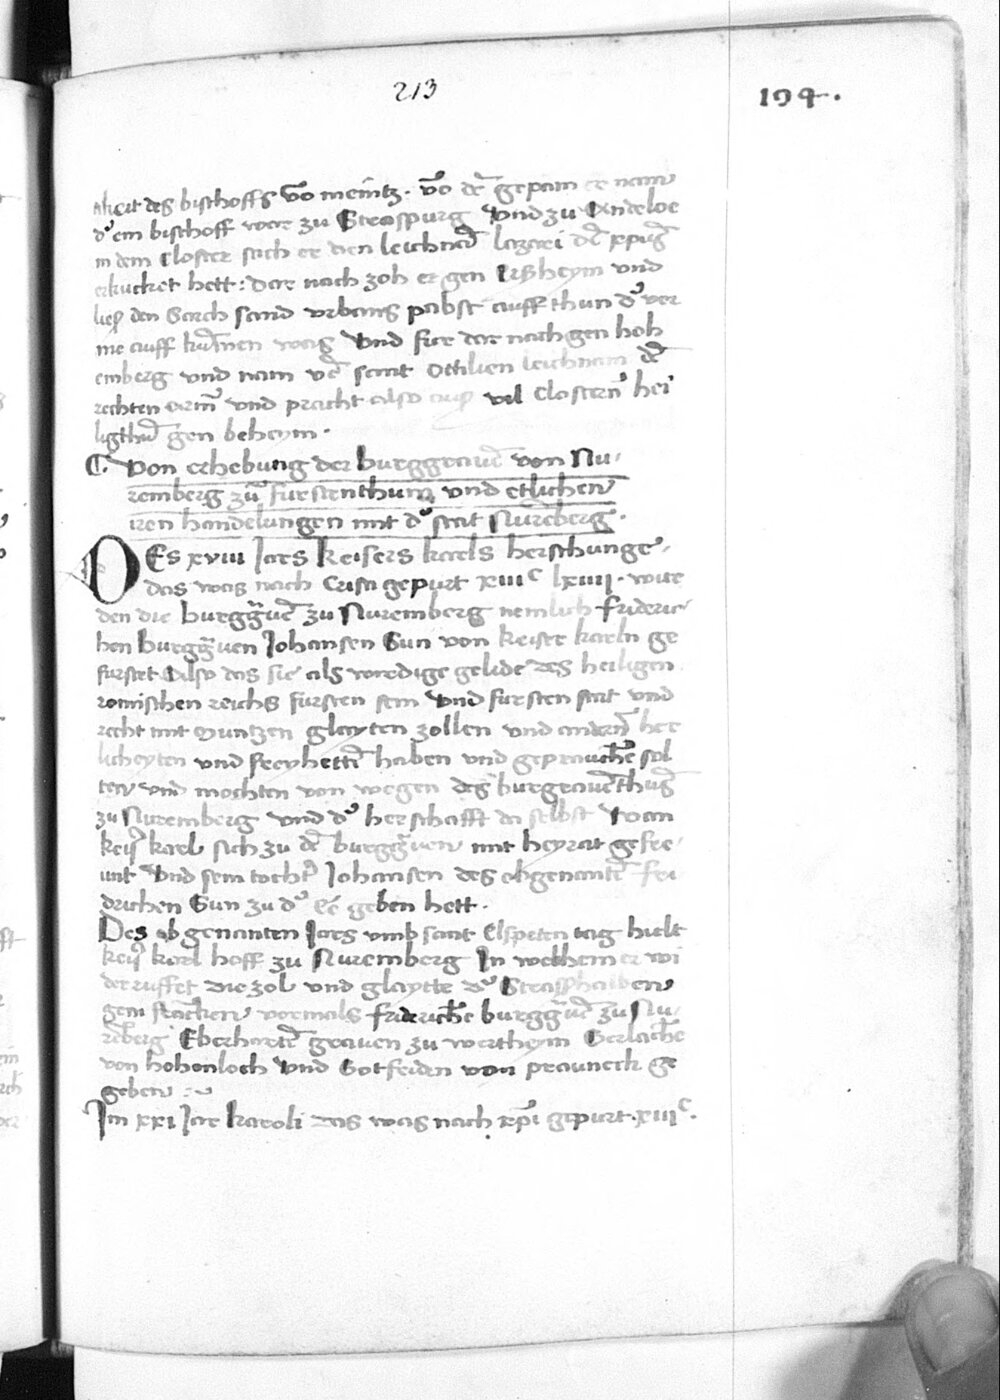 213
194.
des bischoffs võ meintz. võ dẽ gepain er nam
d' ein bischoff was zu Straspurg Vnd zu Andeloe
in dem Closter sach er den leichnã lazari dẽ xpus̃
erkucket hett: dar nach zoh er gen Ersheym vnd
lies den Sarch sand vrbans pabst auff thun d' vor
nie auff kumen was Vnd fur dar nach gen hoh
emberg vnd nam võ sant Otilien leichnam dẽ
rechten arm̃ vnd pracht also aus vil Clostern̄ hei
ligthũ gen beheym.
C. Von erhebung der burggrauẽ von Nu,
remberg zũ furstenthum, vnd etlichen
iren handelungen mit d' stat Nurẽberg.
DEs xviii Jars Keisers karls herschunge,
das was nach Cristi gepurt xiiiᶜ lxiiii. wur
den die burgg̃uẽ zu Nuremberg nemlich frideric
hen burgg̃uen Johansen Sun von keiser karln ge
furstet Also das sie als wirdige gelide des heiligen
romischen reichs fursten sein Vnd fursten stat vnd
recht mit Muntzen glayten zollen vnd andern̄ her
licheyten vnd freyhettẽ haben vnd geprauchẽ sol
ten vnd mochten von wegen des burgrauẽthus̃
zu Nuremberg vnd d' herschafft da selbst Wan
keis̃ karl sich zu dẽ burgg̃uen mit heyrat gefre,
unt Vnd sein tocht' Johansen des obgenantẽ fri
drichen Sun zu d' eẽ geben hett.
Des obgenanten Jars vmb sant Elspeten tag hielt
keis̃ karl hoff zu Nuremberg Jn welhem er wi
derruffet die zol vnd glaytte d' Strasshalben
gem stãcken vormals friderichẽ burgg̃uẽ zu Nu,
rẽberg Eberhartẽ grauen zu wertheym Gerlachẽ
von hohenloch Vnd Gotfriden von prauneck ge
geben :~
Jm xxi Jar karoli das was nach xp̃i gepurt. xiiiᶜ.